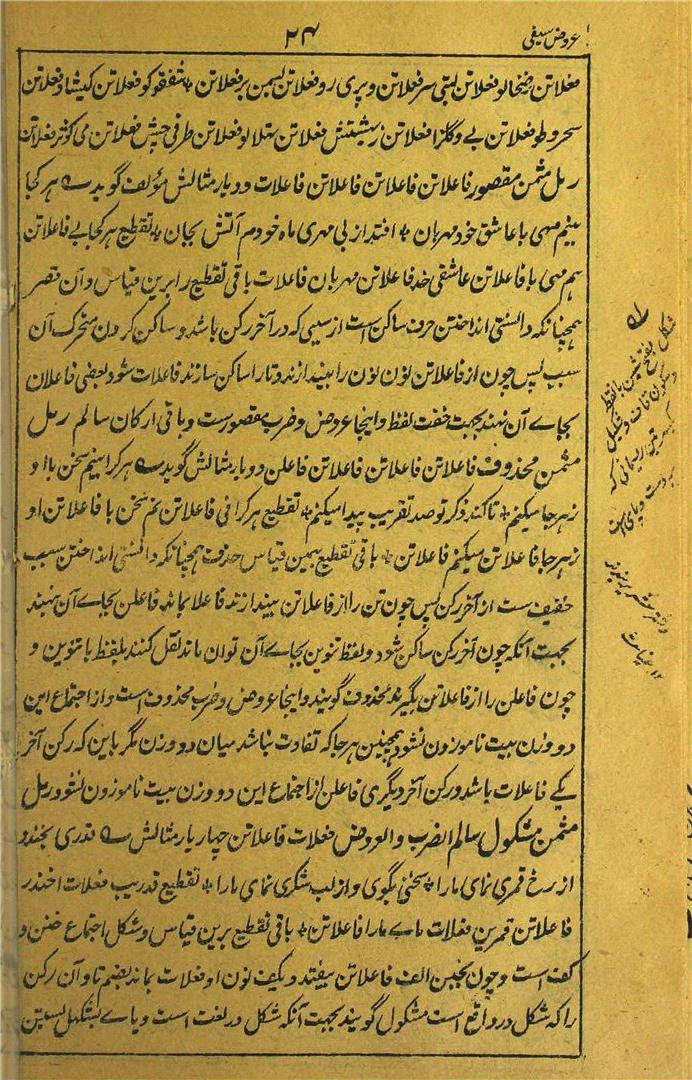 عروض سیفی
۲۴
فعلاتن رضخالو فعلاتن لبتی سر فعلاتن و پری رو فعلاتن لسمن بر فعلاتن * شفقو کو فعلاتن کیشاد فعلاتن
سحر و طو فعلاتن بے و گلزا فعلاتن فعلاتن بهلالو فعلاتن طرفی فعلاتن ی کوثر فعلاتن
رمل مثمن مقصور فاعلاتن فاعلاتن فاعلاتن فاعلات دو بار مثالش مؤلف گوید ے هر کجا
بینم مهی با عاشق خود مهربان * افتد از بی مهری ماه خودم آتش بجان * تقطیع هر کجا بے فاعلاتن
هم مهی با فاعلاتن عاشقی خد فاعلاتن مهربان فاعلات باقی تقطیع را برین قیاس و آن قصر
همچنانکه دانستی انداختن حرف ساکن است از سببی که در آخر رکن باشد و ساکن کردن متحرک آن
سبب پس چون از فاعلاتن نون را بیندازند و تا را ساکن سازند فاعلات شود بعضی فاعلان
بجاے آن نهند بجهت خفت لفظ و اینجا عروض و ضرب مقصورست و باقی ارکان سالم رمل
مثمن محذوف فاعلاتن فاعلاتن فاعلاتن فاعلن دو بار مثالش گوید ے هر کرا بینم سخن با او
ز هر جا میکنم * تا کند ذکر تو صد تقریب پیدا میکنم * تقطیع هر کرا فی فاعلاتن نم سخن با فاعلاتن او
ز هر جا فاعلاتن میکنم فاعلن * باقی تقطیع بهمین قیاس حذف همچنانکه دانستی انداختن سبب
خفیف ست از آخر رکن پس چون تن را از فاعلاتن بیندازند فاعلا بماند فاعلن بجاے آن نهند
بجهت آنکه چون آخر رکن ساکن شود و لفظ تنوین بجاے آن توان ماند نقل کنند بلفظ با تنوین و
چون فاعلن را از فاعلاتن بگیرند محذوف گویند و اینجا عروض و ضرب محذوف است و از اجتماع این
دو وزن بیت ناموزون نشود همچنین هر جا که تفاوت نباشد میان دو وزن مگر باین که رکن آخر
یکے فاعلات باشد و رکن آخر دیگری فاعلن از اجتماع این دو وزن بیت ناموزون نشود رمل
مثمن مشکول سالم الضرب و العروض فعلات فاعلاتن چهار بار مثالش ے قدری بخند و
از رخ قمری نمای ما را * سخنی بگوی و از لب شکری نمای ما را * تقطیع قدریب فعلات اخندز
فاعلاتن قمرین فعلات ماے مارا فاعلاتن * باقی تقطیع برین قیاس و شکل اجتماع خبن و
کف است و چون بخبن الف فاعلاتن بیفتد و بکف نون او فعلات بماند بضم تا و آن رکن
را که شکل در و واقع است مشکول گویند بجهت آنکه شکل در لغت است و پاے بشکیل بستن
شکل بفتح شین بالفظ
و سکون کاف و شکیل
ریسمانی که
دست و پای